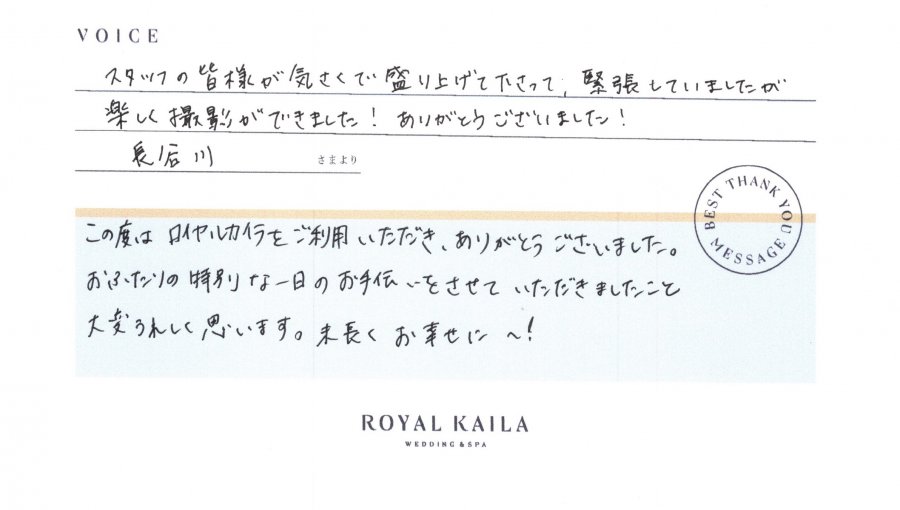 VOICE
スタッフの皆様が気さくで盛り上げて下さって、緊張していましたが
楽しく撮影ができました！ありがとうございました！
長谷川 さまより
BEST THANK YOU MESSAGE
この度はロイヤルカイラをご利用いただき、ありがとうございました。
おふたりの特別な一日のお手伝いをさせていただきましたこと
大変うれしく思います。末長くお幸せに〜！
ROYAL KAILA
WEDDING & SPA